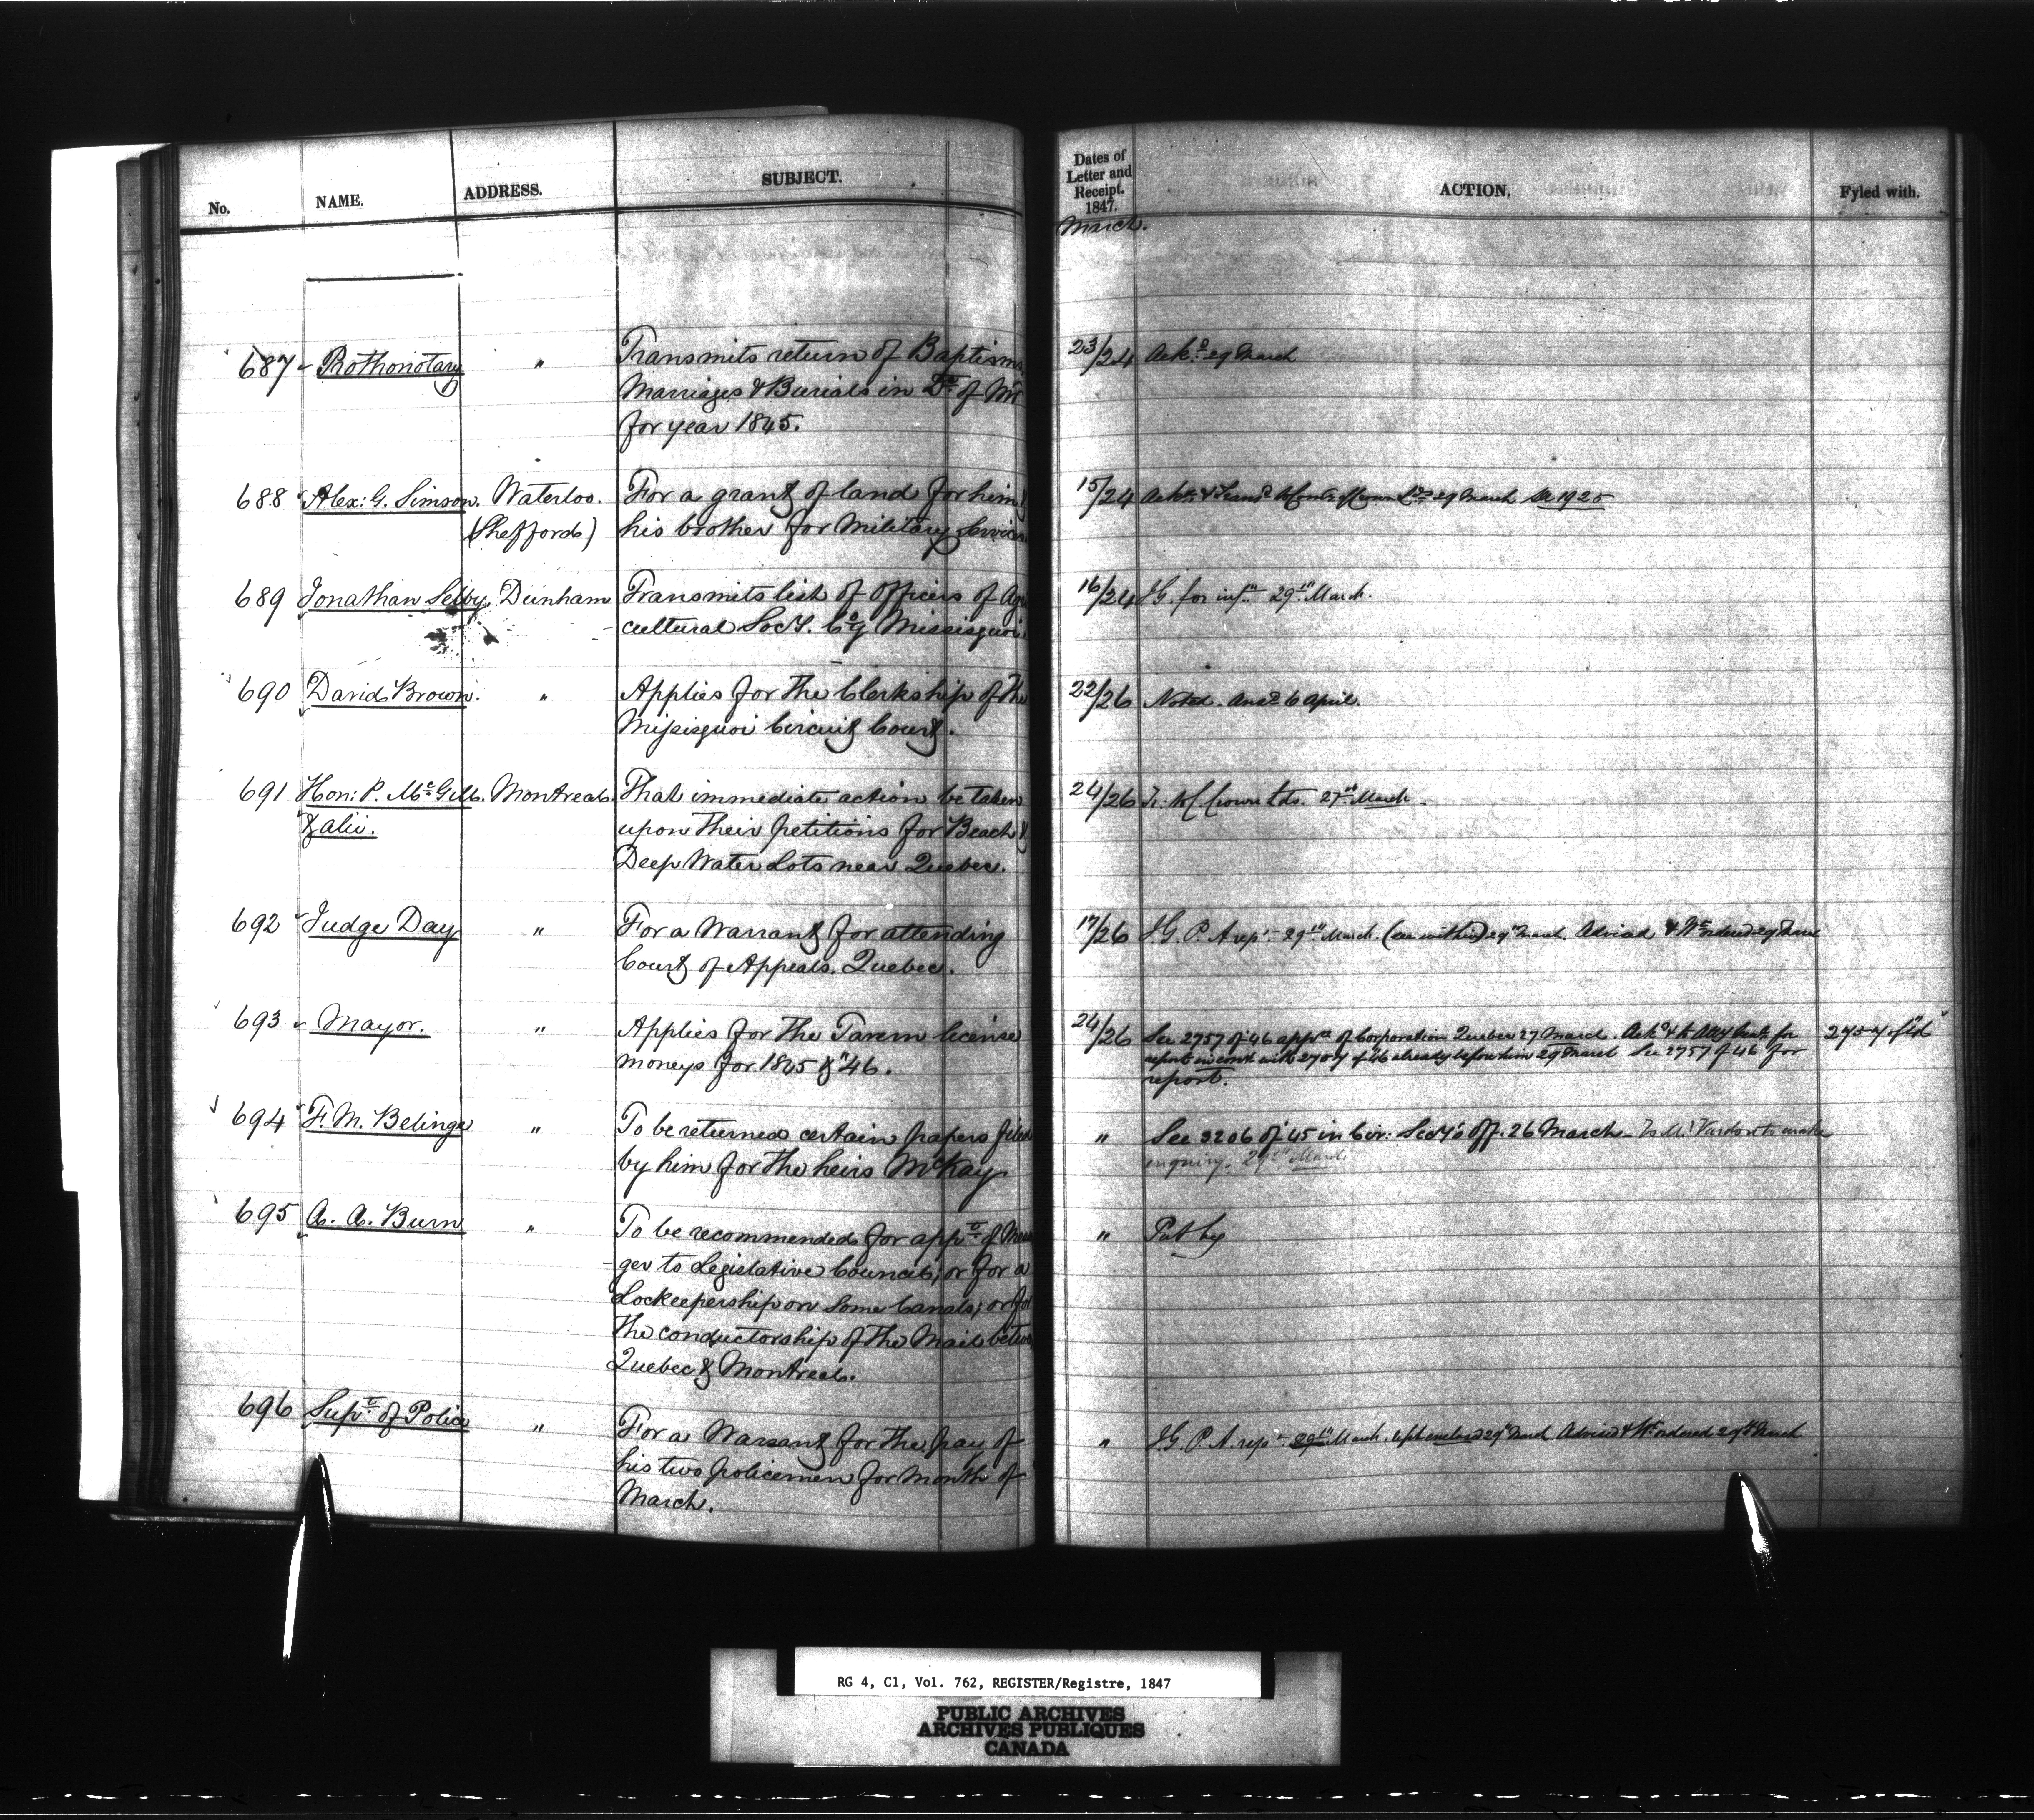 No. NAME. ADDRESS. SUBJECT.
Dates of Letter and Receipt. 1847. ACTION. Fyled with.
March.
687 Prothonotary " Transmits return of Baptisms
Marriages & Burials in Dt of Mt
for year 1845.
23/24 Ackd 29 March
688 Alex: G. Simson. Waterloo. For a grant of land for him &
(Shefford) his brother for Military Services
15/24 29 March See 1925
689 Jonathan Selby. Dunham Transmits list of Officers of Agri
cultural Socy. Coy Missisquoi
16/24 I.G. for infn 29th March.
690 David Brown. " Applies for the Clerkship of the
Missisquoi Circuit Court.
22/26 Noted. Ansd 6 April.
691 Hon: P. McGill. Montreal. That immediate action be taken
& alii. upon their petitions for Beach &
Deep Water Lots near Quebec.
24/26 Tr. to C. Crown Lds. 27th March.
692 Judge Day " For a Warrant for attending
Court of Appeals. Quebec.
17/26 I.G. P. A rept 29th March. (as within) 29th March. Advised & Wt ordered 29 March
693 Mayor. " Applies for the Tavern license
moneys for 1845 & "46.
24/26 See 2757 of 46 appn of Corporation Quebec 27 March. Ackd & to Atty for
report in with 2757 of 46 already before him 29 March See 2757 of 46 for
report.
2757 of 46
694 F. M. Belinge " To be returned certain papers filed
by him for the heirs McKay
" See 3206 of 45 in Civ: Secy's Off. 26 March - To Mr. Vardon to make
enquiry. 29th March
695 A. A. Burn " To be recommended for appt of Messen
ger to Legislative Council; or for a
Lockeepership on some Canals; or for
the conductorship of the Mail betwn
Quebec & Montreal.
" Put by
696 Supt of Police " For a Warrant for the pay of
his two policemen for month of
March.
" I.G. P. A. rept 29th March. 29th March Advised & Wt ordered 29th March
RG 4, C1, Vol. 762, REGISTER/Registre, 1847
PUBLIC ARCHIVES
ARCHIVES PUBLIQUES
CANADA